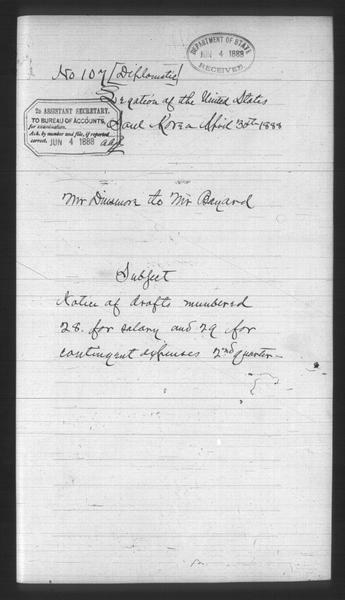 DEPARTMENT OF STATE
JUN 4 1888
RECEIVED
No 107 [Diplomatic]
Legation of the United States
Seoul Korea April 30th 1888
2D ASSISTANT SECRETARY.
TO BUREAU OF ACCOUNTS,
for examination.
Ack. by number and file, if reported
correct. JUN 4 1888
Mr Dinsmore to Mr Bayard
Subject
Notice of drafts numbered
28. for salary and 29 for
contingent expenses 2nd quarter—